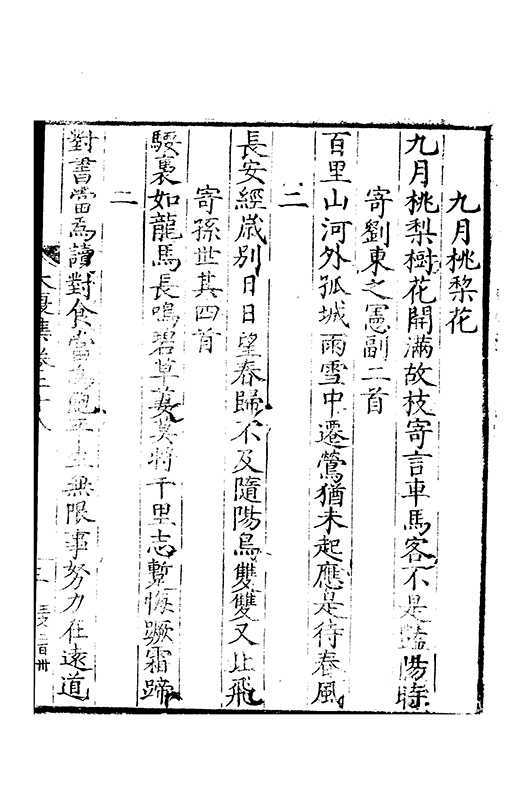 九月桃梨花
九月桃梨樹花開滿故枝寄言車馬客不是豔陽時
寄劉東之憲副二首
百里山河外孤城雨雪中遷鶯猶未起應是待春風
二
長安經歲別日日望春歸不及隨陽鳥雙雙又北飛
寄孫世其四首
騕褭如龍馬長鳴碧草萋莫將千里志暫悔蹶霜蹄
二
對書當為讀對食當為飽平生無限事努力在遠道
大復集卷二十八
三